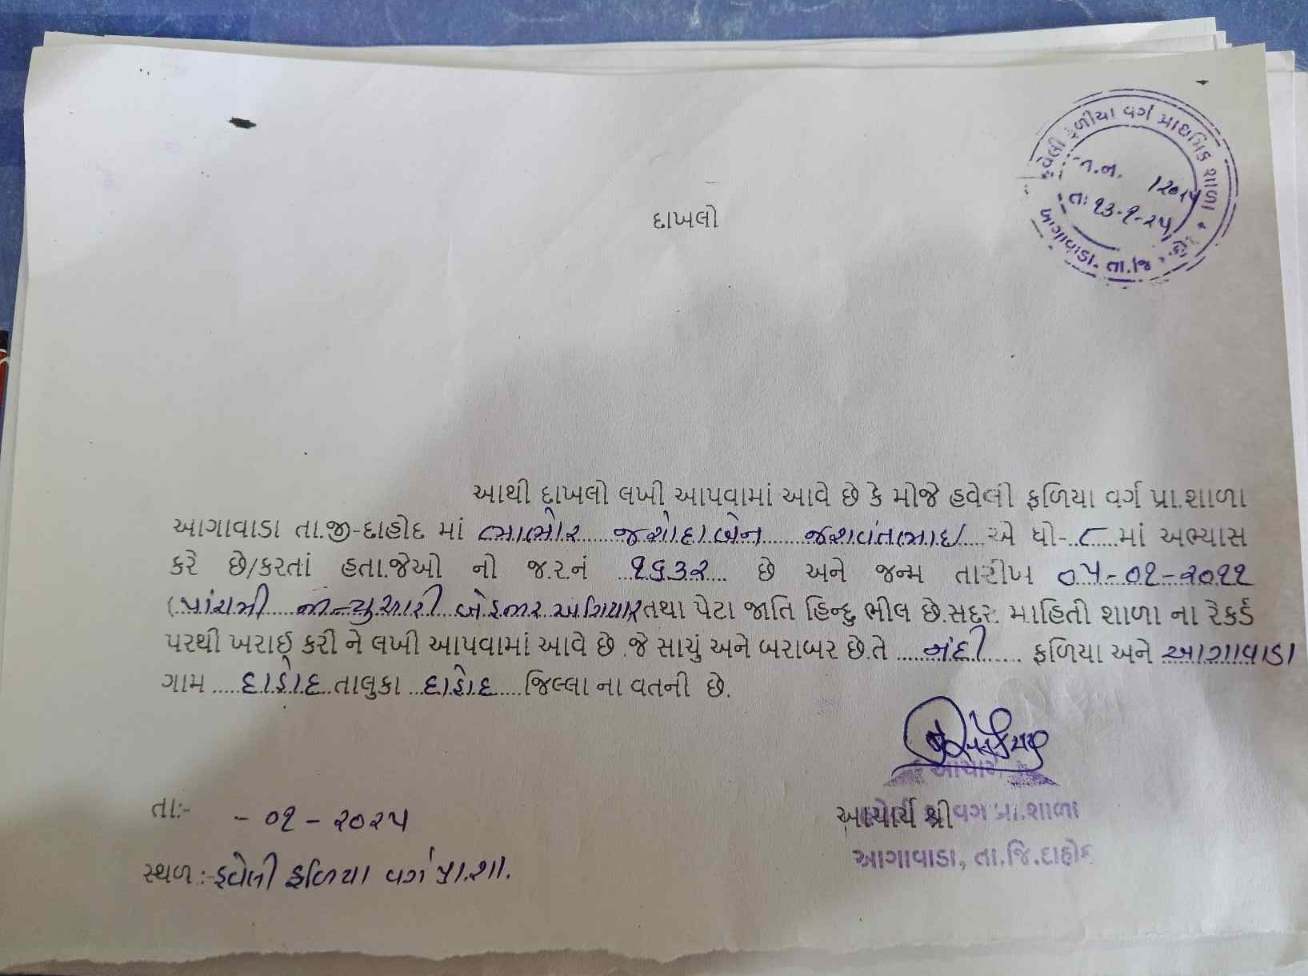 હવેલી ફળીયા વર્ગ પ્રાથમિક શાળા
જા.ન. /2014
તા: ૧૩-૧-૨૫
આગાવાડા. તા.જિ.દાહોદ
દાખલો
આથી દાખલો લખી આપવામાં આવે છે કે મોજે હવેલી ફળિયા વર્ગ પ્રા.શાળા
આગાવાડા તા.જી-દાહોદ માં ભાભોર જશોદાબેન જશવંતભાઇ એ ધો-૮ માં અભ્યાસ
કરે છે/કરતાં હતા.જેઓ નો જ.ર.નં ૧૬૩૨ છે અને જન્મ તારીખ ૦૫-૦૧-૨૦૧૧
(પાંચમી જાન્યુઆરી બેહજાર અગિયાર તથા પેટા જાતિ હિન્દુ ભીલ છે.સદર માહિતી શાળા ના રેકર્ડ
પરથી ખરાઈ કરી ને લખી આપવામાં આવે છે .જે સાચું અને બરાબર છે.તે નંદી ફળિયા અને આગાવાડા
ગામ દાહોદ તાલુકા દાહોદ જિલ્લા ના વતની છે.
આચાર્ય
તા:- - ૦૧ - ૨૦૨૫
આચાર્ય શ્રી વર્ગ પ્રા.શાળા
આગાવાડા, તા.જિ.દાહોદ
સ્થળ:- હવેલી ફળિયા વર્ગ પ્રા.શા.